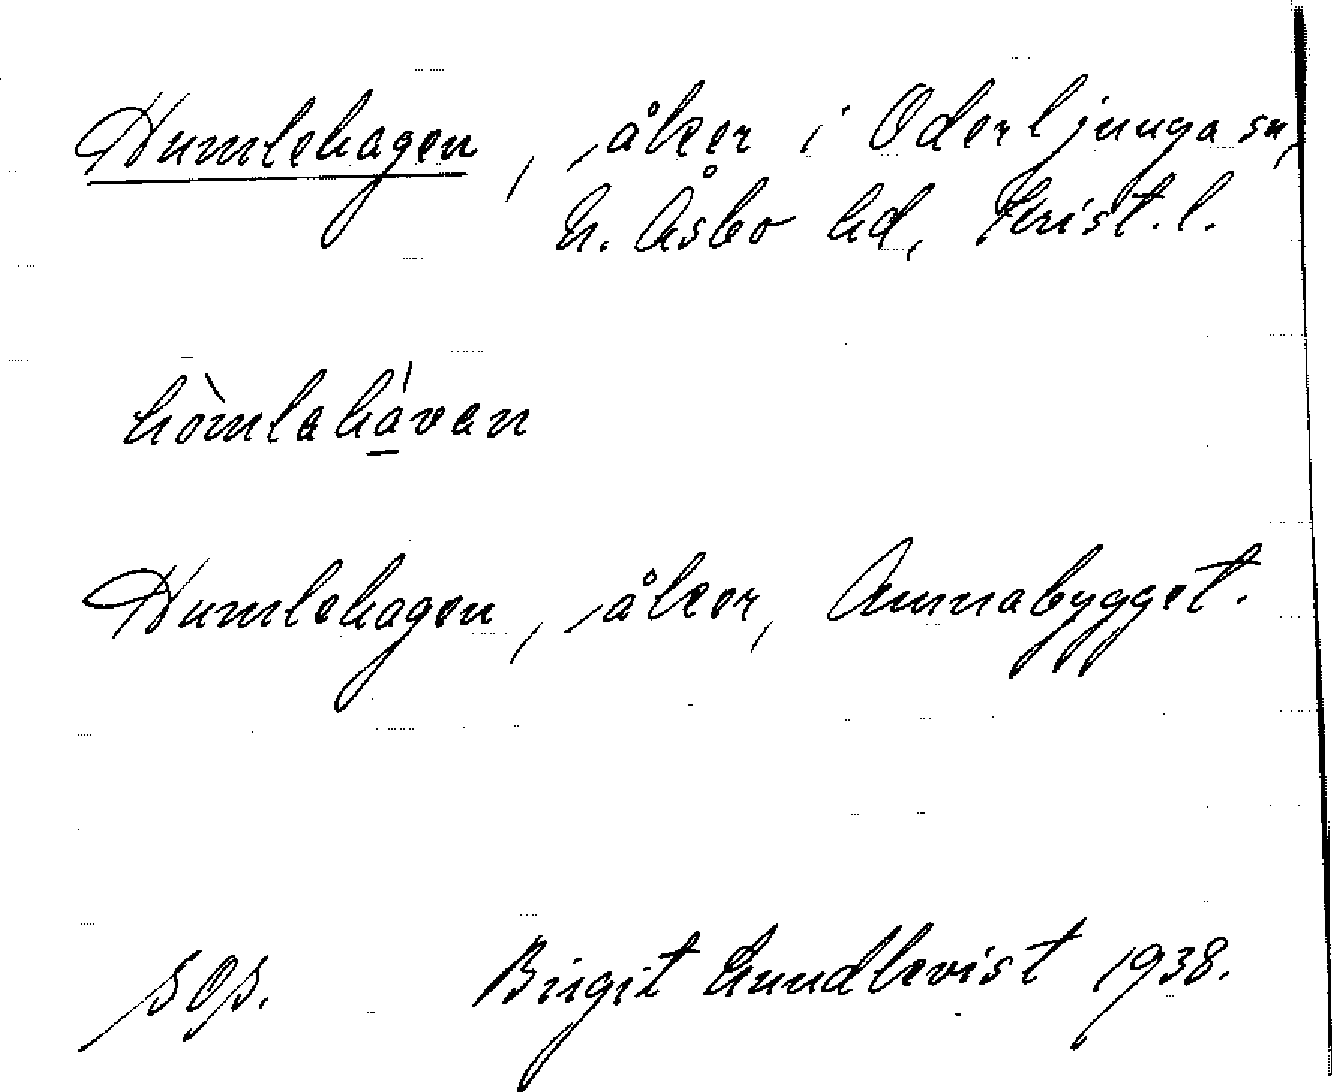 Humlehagen, åker i Oderljunga sn,
N. Åsbo hd, Krist. l.
hòmlahávan
Humlehagen, åker, Annabygget.
sOs. Birgit Lundkvist 1938.